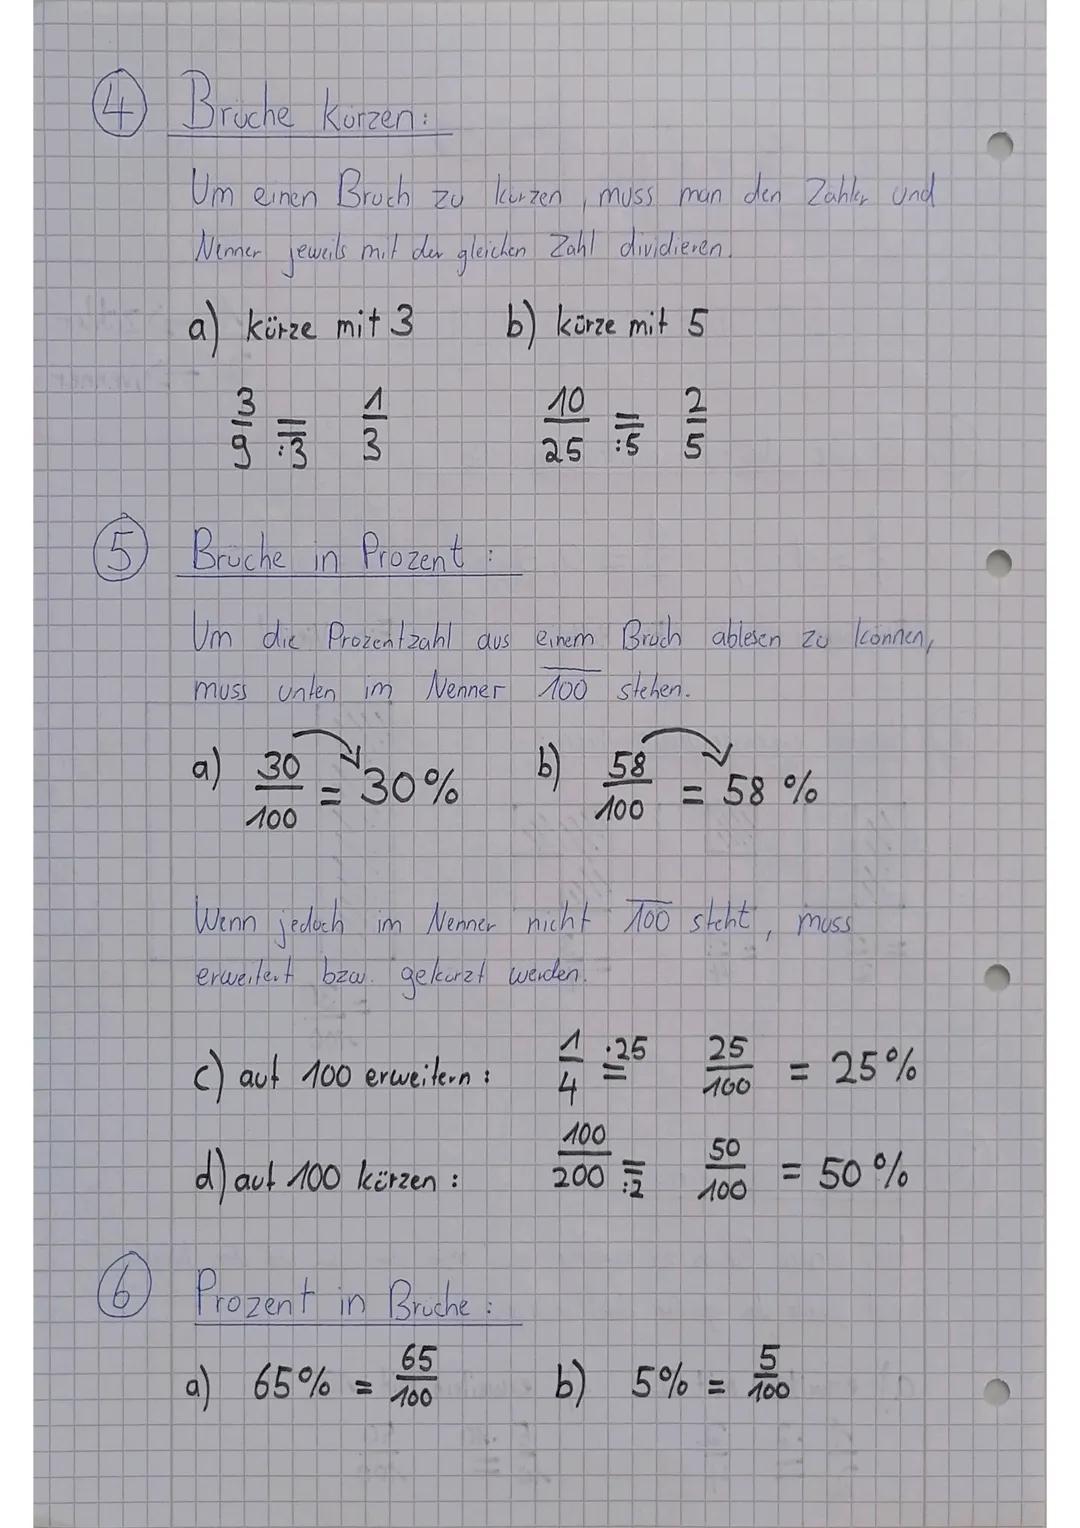 4 Brüche kürzen:
Um einen Bruch zu kürzen, muss man den Zähler und
Nenner jeweils mit der gleichen Zahl dividieren.
a) kürze mit 3 b) kürze mit 5
3/9 =:3 1/3 10/25 =:5 2/5
5 Brüche in Prozent:
Um die Prozentzahl aus einem Bruch ablesen zu können,
muss unten im Nenner /100 stehen.
a) 30/100 = 30% b) 58/100 = 58 %
Wenn jedoch im Nenner nicht /100 steht, muss
erweitert bzw. gekürzt werden.
c) auf 100 erweitern: 1/4 ·25= 25/100 = 25%
d) auf 100 kürzen: 100/200 =:2 50/100 = 50 %
6 Prozent in Brüche:
a) 65% = 65/100 b) 5% = 5/100